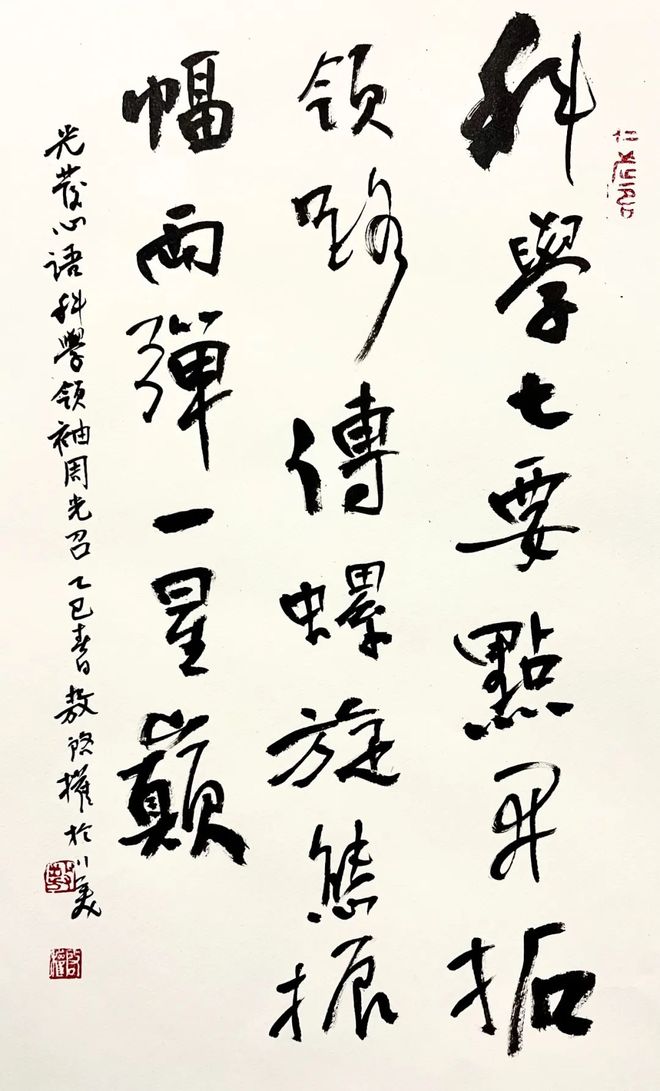 科學七要點開拓
領路傳螺旋態振
幅兩彈一星巔
光發心語科學领袖周光召乙巳春日敖啟權於川美